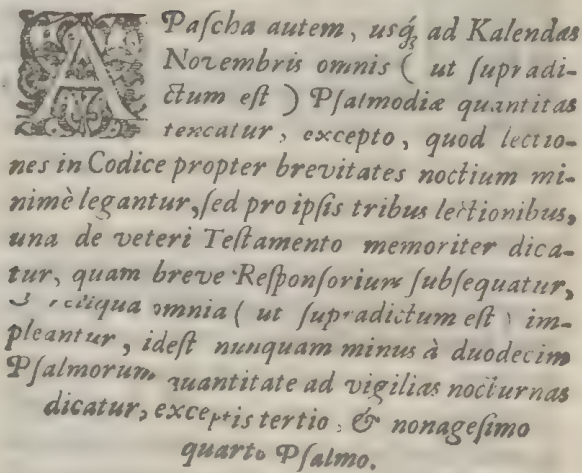 A Pascha autem, usq́; ad Kalendas
Novembris omnis ( ut supradi-
ctum est ) Psalmodiæ quantitas
teneatur, excepto, quod lectio-
nes in Codice propter brevitates noctium mi-
nimè legantur, sed pro ipsis tribus lectionibus,
una de veteri Testamento memoriter dica-
tur, quam breve Responsorium subsequatur,
& reliqua omnia ( ut supradictum est ) im-
pleantur, idest nunquam minus à duodecim
Psalmorum quantitate ad vigilias nocturnas
dicatur, exceptis tertio, & nonagesimo
quarto Psalmo.